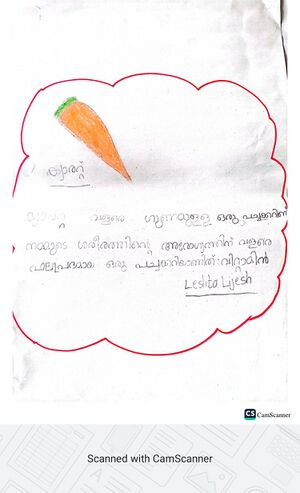 ക്യാരറ്റ്
ക്യാരറ്റ് വളരെ ഗുണമുള്ള ഒരു പച്ചക്കറിണ്
നമ്മുടെ ശരീരത്തിന്റെ ആരോഗ്യത്തിന് വളരെ
ഫലപ്രദമായ ഒരു പച്ചക്കറിയാണിത് വിറ്റാമിൻ
Leslita Lijesh
CS CamScanner
Scanned with CamScanner